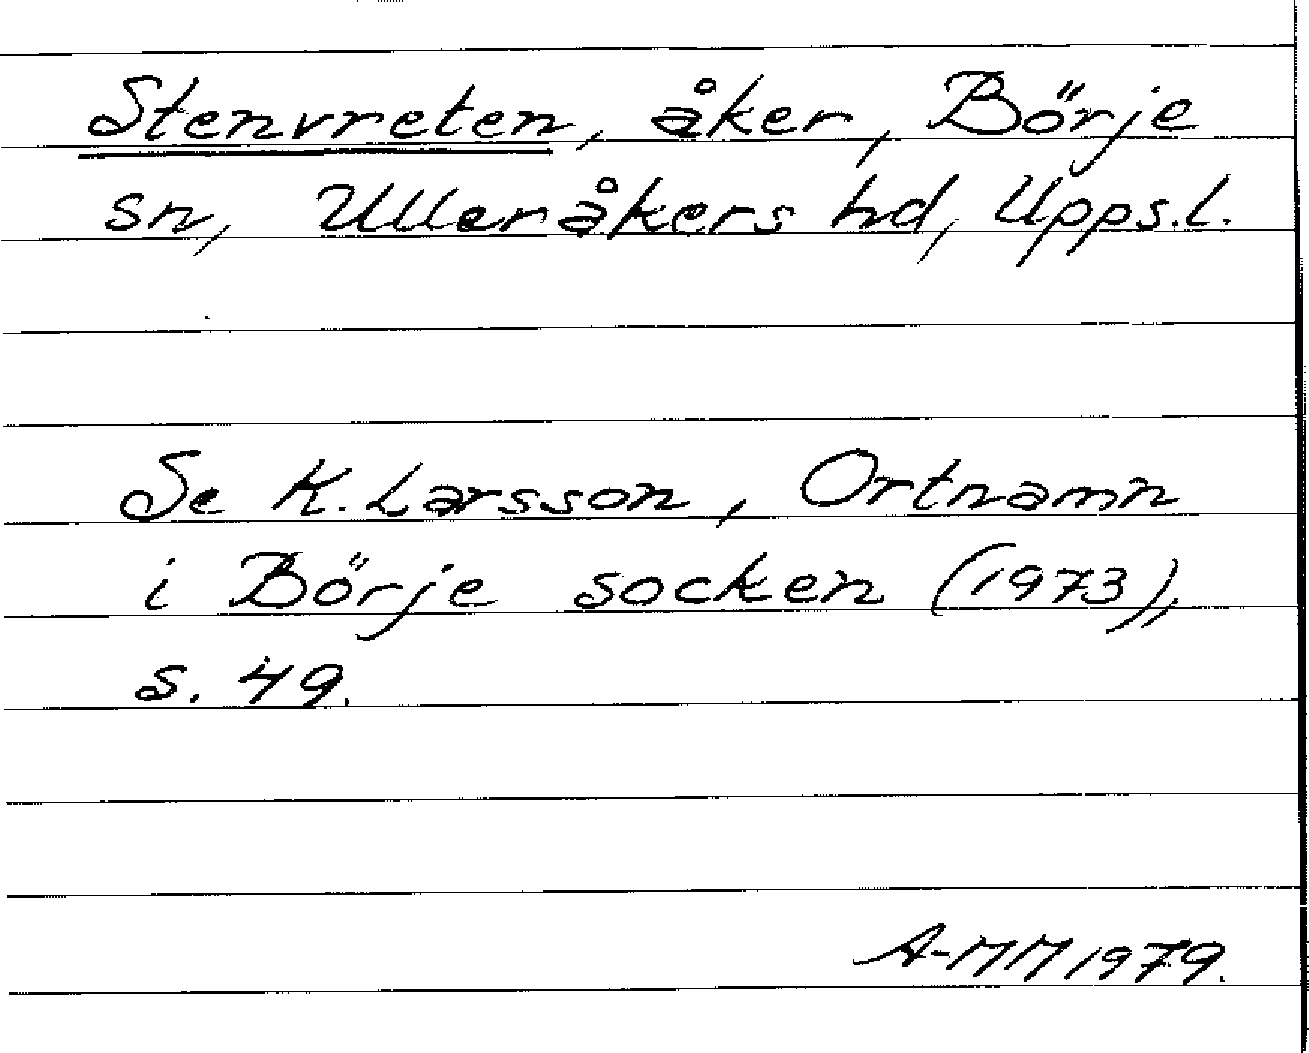 Stenvreten, åker, Börje
sn, Ulleråkers hd, Upps.l.
Se K. Larsson, Ortnamn
i Börje socken (1973),
s. 49.
A-MM 1979.